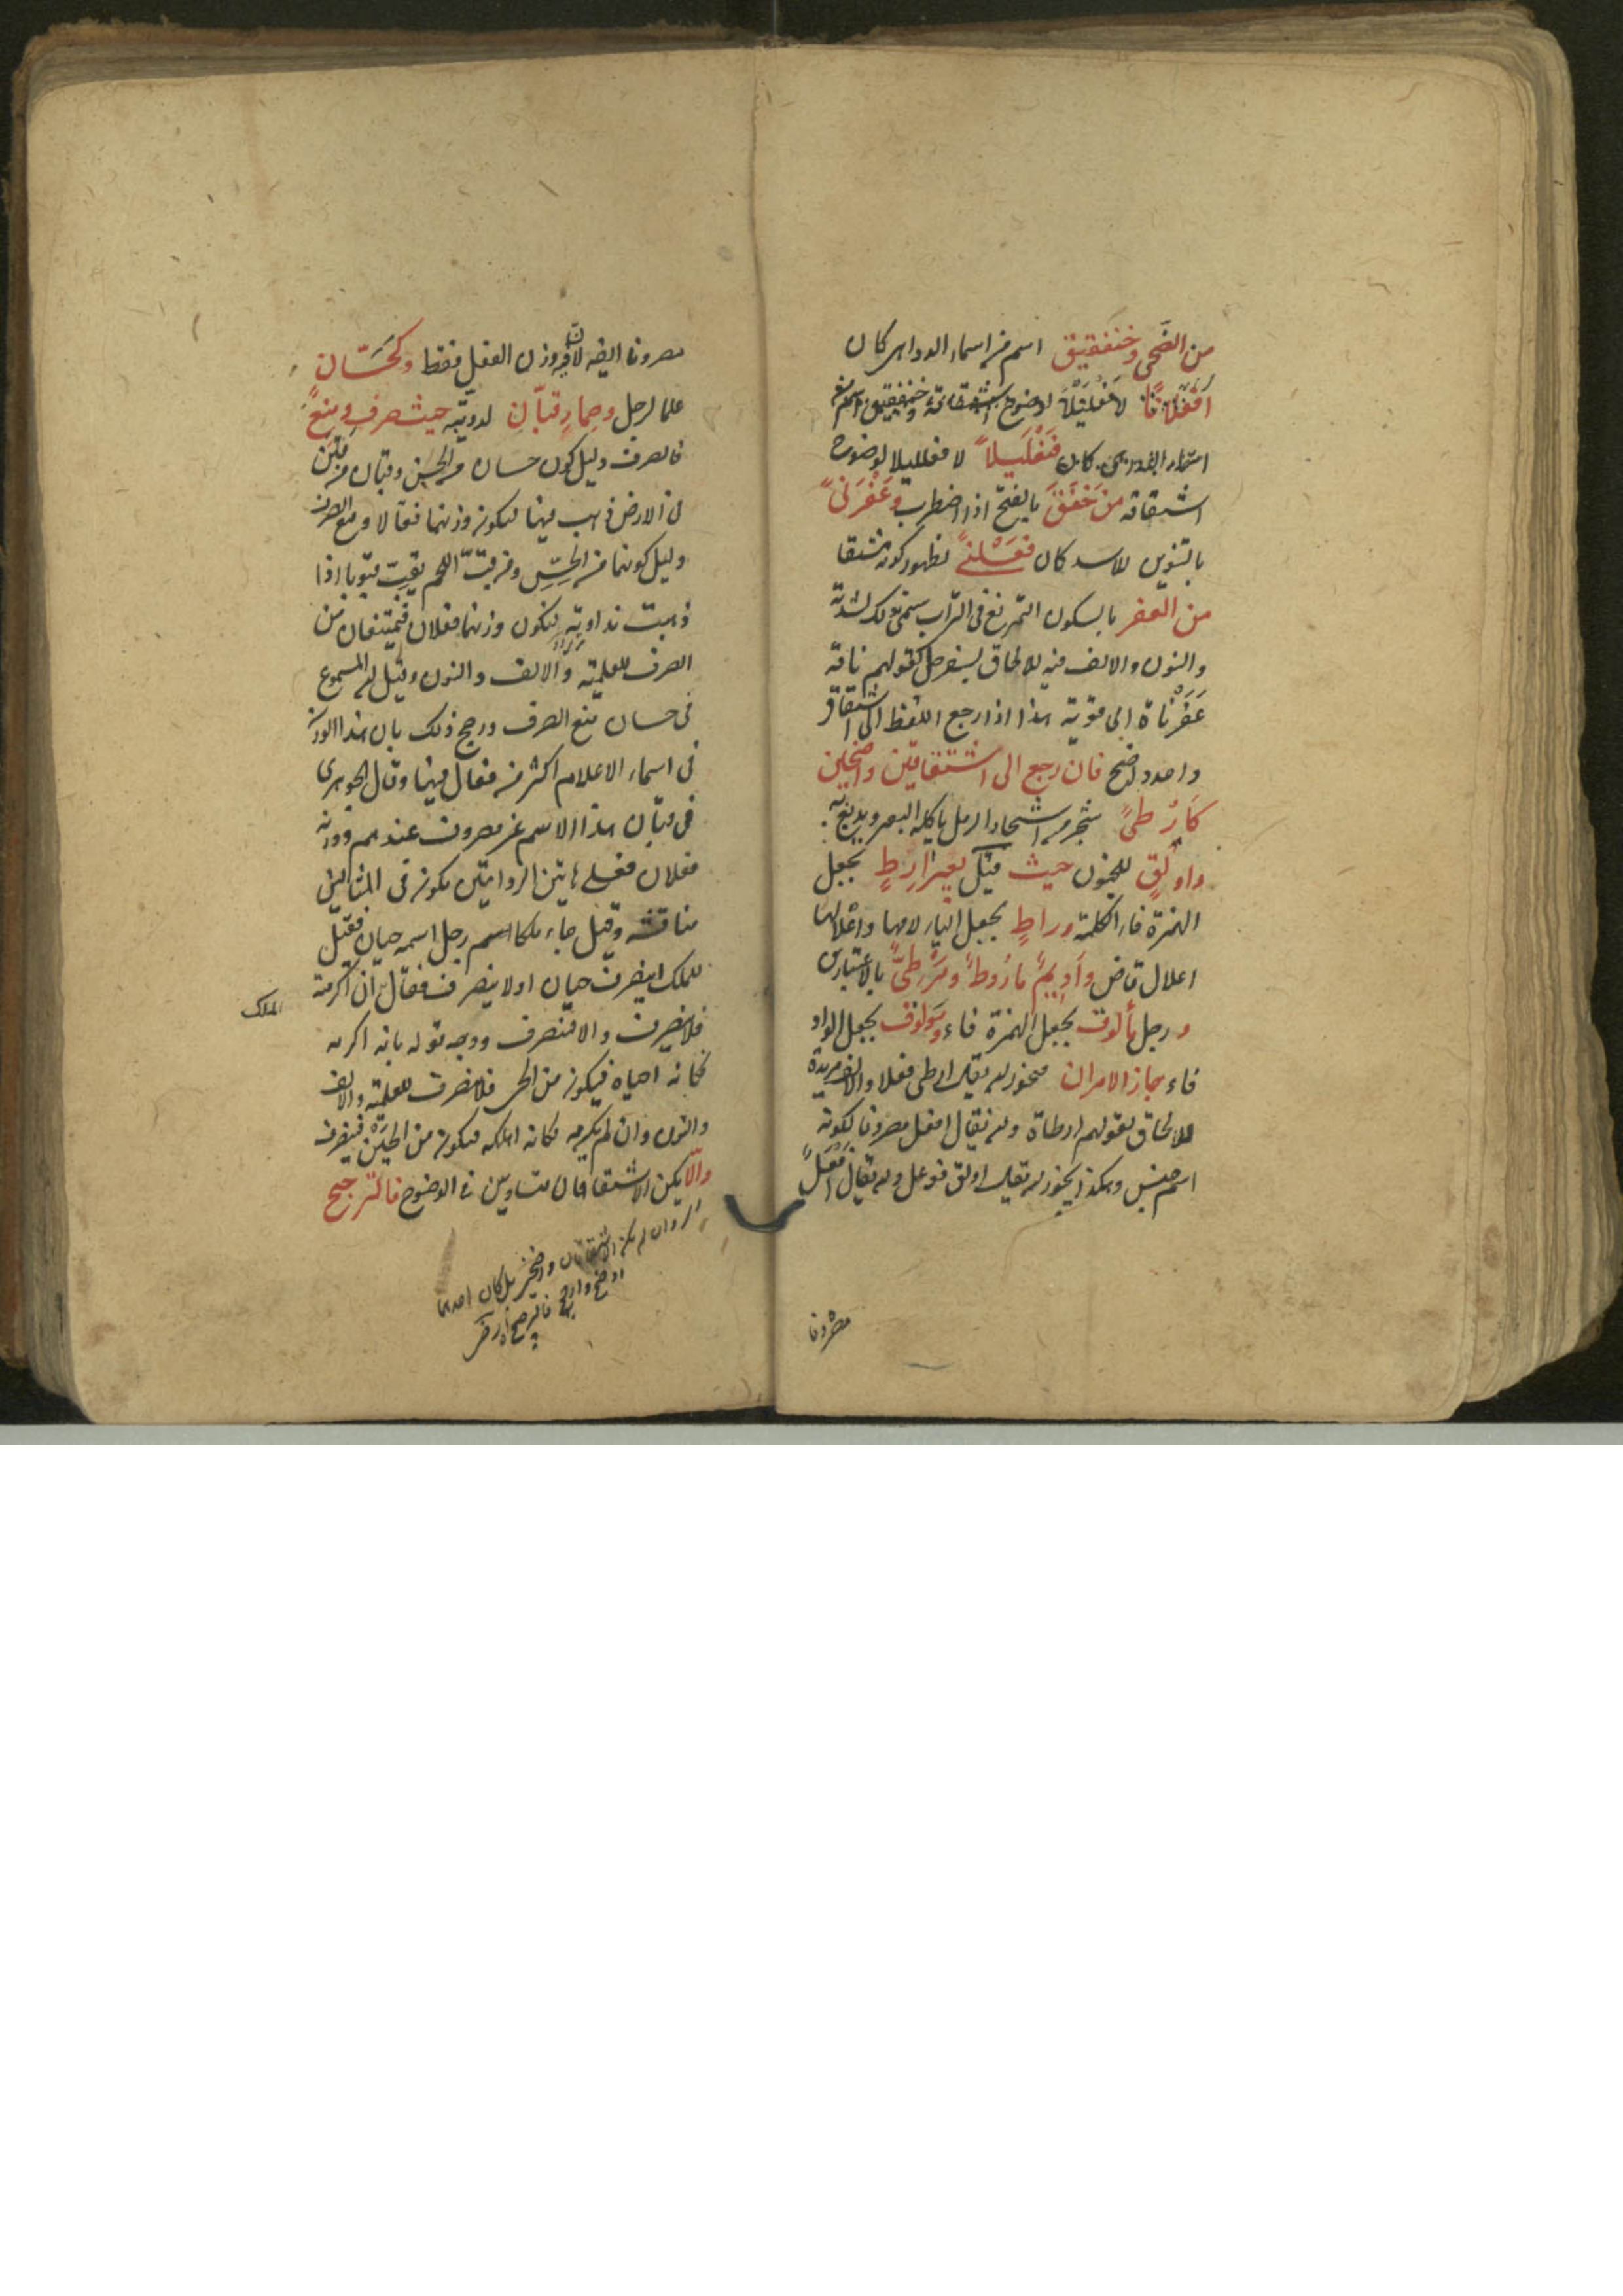 من الضحى وخنفقيق اسم من اسماء الدواهى كان
لوضوح اشتقاقه وخنفقيق اسم من
اسماء كان فنعليلا لا فعلليلا لوضوح
اشتقاقه من خَفَقَ بالفتح اذا اضطرب وعَفَرْنىً
بالتنوين للاسد كان فعلنىً لظهور كونه مشتقا
من العفر بالسكون التمريغ فى التراب سمى بذلك لشدته
والنون والالف فيه للالحاق بسفرجل كقولهم ناقة
عَفَرْناة اى قوية هذا اذا رجع اللفظ الى اشتقاق
واحد واضح فان رجع الى اشتقاقين واضحين
كَارْطىً شجر من اشجار الرمل ياكله البعير ويدبغ به
واولقٍ للجنون حيث قيل بعير ارطٍ بجعل
الهمزة فاء الكلمة وراطٍ بجعل الياء لامها واعلالها
اعلال قاض واديم ماروط ومرطىّ بالاعتبارين
ورجل مألوق بجعل الهمزة فاء ومولوق بجعل الواو
فاء جاز الامران فيجوز ان يقال ارطى فعلا والالف مزيدة
للالحاق لقولهم ارطاة وان يقال افعل مصروفا لكونه
اسم جنس وهكذا يجوز ان يقال اولق فوعل وان يقال افعل
مصروفا
مصروفا ايضا لان فيه وزن الفعل فقط وكحَسّان
علما لرجل وحمار قبّان لدويبة حيث صرف ومنع
فالصرف دليل كون حسان من الحسن وقبان من قبن
فى الارض ذهب فيها ليكون وزنهما فعالا ومنع الصرف
دليل كونهما من الحسّ ومن قبّ اللحم يقبّ قبوبا اذا
ذهبت نداوته ليكون وزنهما فعلان فيمتنعان من
الصرف للعلمية والالف والنون وقيل ان المسموع
فى حسان منع الصرف ورجح ذلك بان هذا الوزن
فى اسماء الاعلام اكثر من فعال فيها وقال الجوهرى
فى قبان هذا الاسم غير مصروف عندهم ووزنه
فعلان فعلى هاتين الروايتين يكون فى المثالين
مناقشة وقيل جاء ملكا اسم رجل اسمه حيان فقيل
للملك اينصرف حيان او لا ينصرف فقال ان اكرمته
الملك
فلا ينصرف والا فينصرف ووجه قوله بانه اكرمه
فكانه احياه فيكون من الحى فلا ينصرف للعلمية والالف
والنون وان لم يكرمه فكانه اهلكه فيكون من الحين فينصرف
والّا يكن الاشتقاقان متساويين فى الوضوح فالترجيح
اى وان لم يكن الاشتقاقان واضحين بل كان احدهما
اوضح وارجح فالترجيح